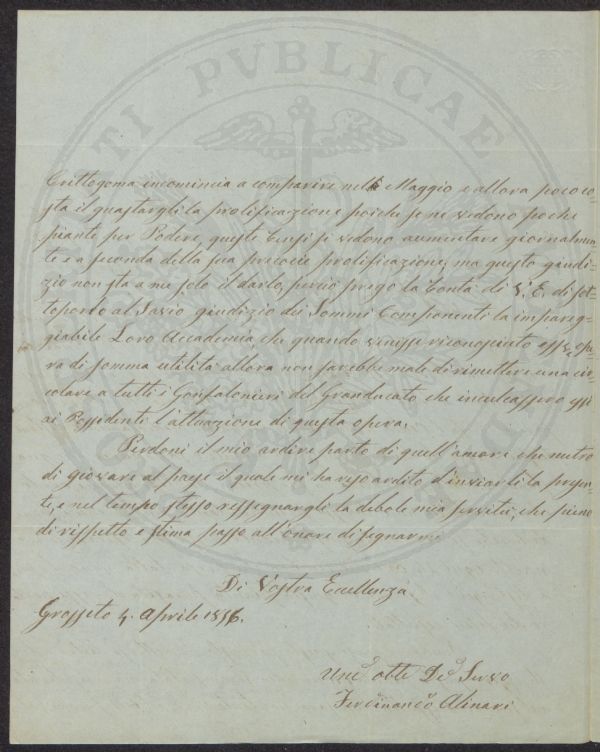 TI PVBLICAE
Crittogama incomincia a comparire nel Maggio e allora poco co-
sta il guastargli la prolificazione poiche se ne vedono poche
piante per Podere, questi Censi si vedono aumentare giornalmen-
te e a seconda della sua precocie prolificazione; ma questo giudi-
zio non sta a me solo il darlo, perciò prego la bontà di V. E. di sot-
toporlo al Savio giudizio dei Sommi Componenti la impareg-
giabile Loro Accademia che quando venissi riconosciuto esse, ope-
ra di somma utilità allora non sarebbe male di rimettere una cir-
colare a tutti i Gonfalonieri del Granducato che inculcassero essi
ai Possidenti l'attuazione di questa opera.
Perdoni il mio ardire parto di quell'amore che nutro
di giovare al paese il quale mi ha reso ardito d'inviarli la presen-
te, e nel tempo stesso rassegnargli la debole mia servitù, che pieno
di rispetto e stima passo all'onore di segnarmi
Di Vostra Eccellenza
Grosseto 4. Aprile 1856.
Umo obbo Do Servo
Ferdinando Alinari